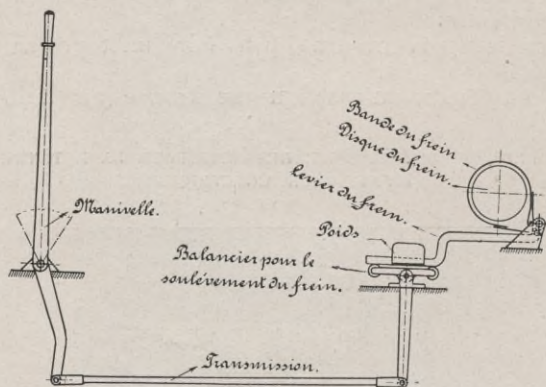 Bande du frein
Disque du frein.
Levier du frein.
Manivelle.
Poids
Balancier pour le
soulèvement du frein.
Transmission.